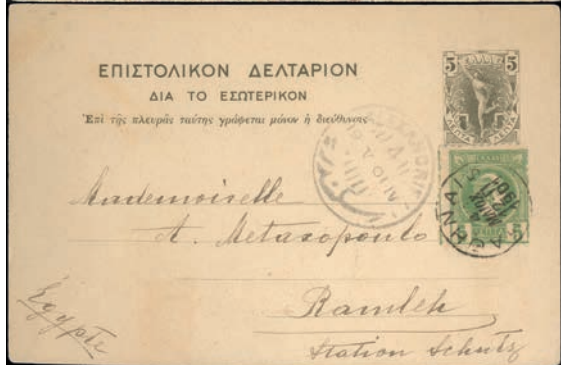 ΕΠΙΣΤΟΛΙΚΟΝ ΔΕΛΤΑΡΙΟΝ
ΔΙΑ ΤΟ ΕΣΩΤΕΡΙΚΟΝ
Ἐπὶ τῆς πλευρᾶς ταύτης γράφεται μόνον ἡ διεύθυνσις
5 ΕΛΛΑΣ 5
ΛΕΠΤΑ ΛΕΠΤΑ
ALEXANDRIE
ΑΘΗΝΑΙ
1901
5 5
Mademoiselle
A. Metaxopoulo
Ramleh
Station Schutz
Egypte